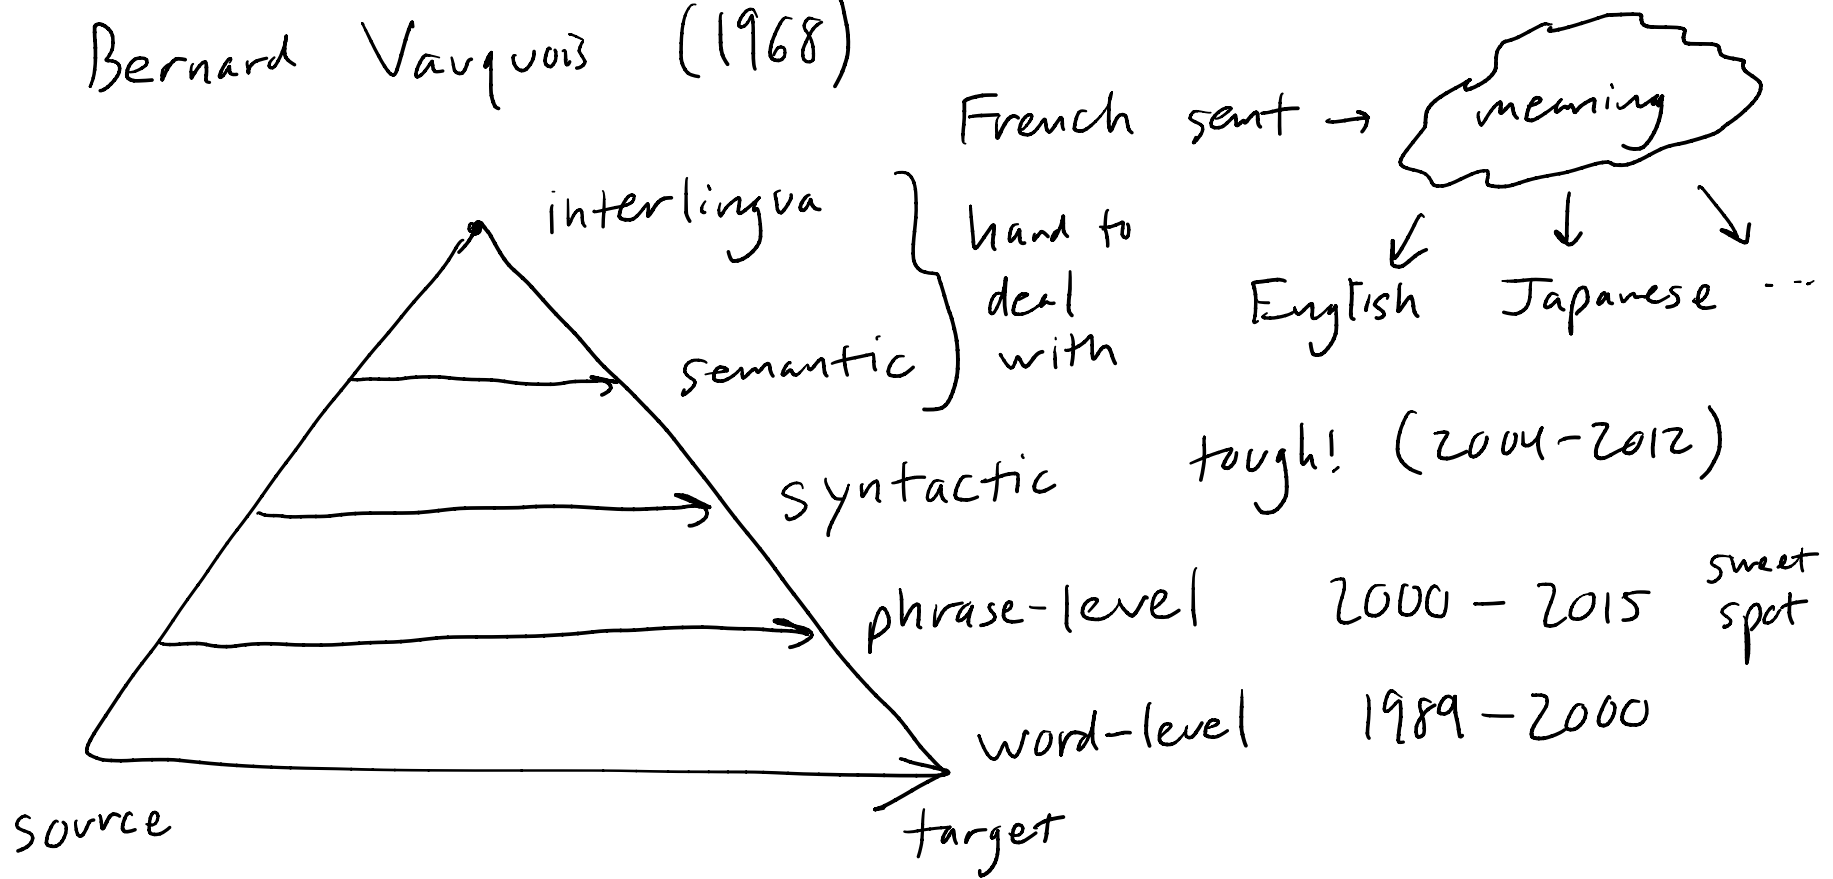 Bernard Vauquois (1968)
French sent → meaning
English Japanese ...
interlingua
semantic
hard to
deal
with
syntactic tough! (2004-2012)
phrase-level 2000 - 2015 sweet
spot
word-level 1989 - 2000
source target